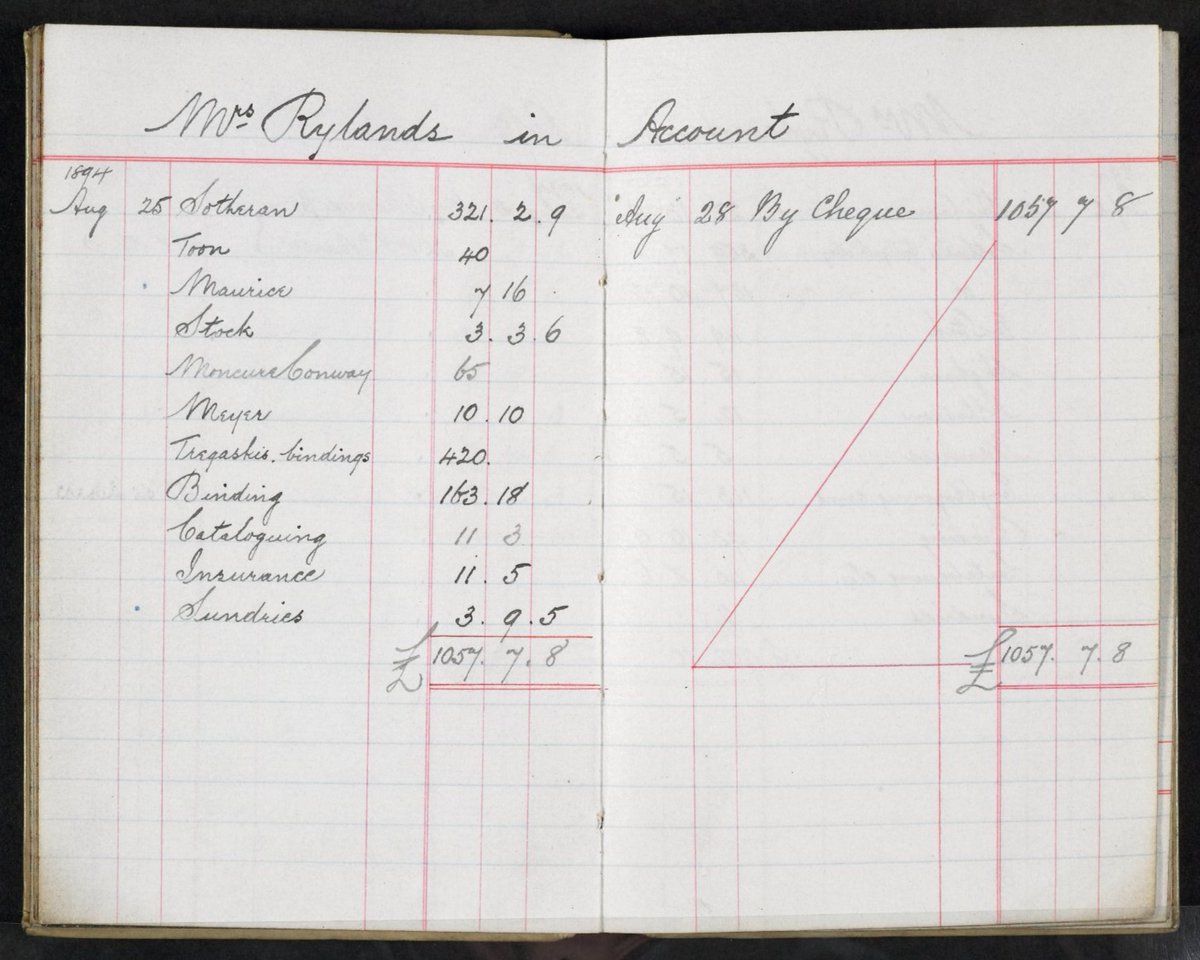 Mrs Rylands in Account
1894
Aug 25 Sotheran 321. 2. 9
Toon 40
Maurice 7 16
Stock 3. 3. 6
Moncure Conway 65
Meyer 10. 10
Tregaskis. bindings 420.
Binding 163. 18
Cataloguing 11 3
Insurance 11. 5
Sundries 3. 9. 5
£ 1057. 7. 8
Aug 28 By Cheque 1057 7 8
£ 1057. 7. 8